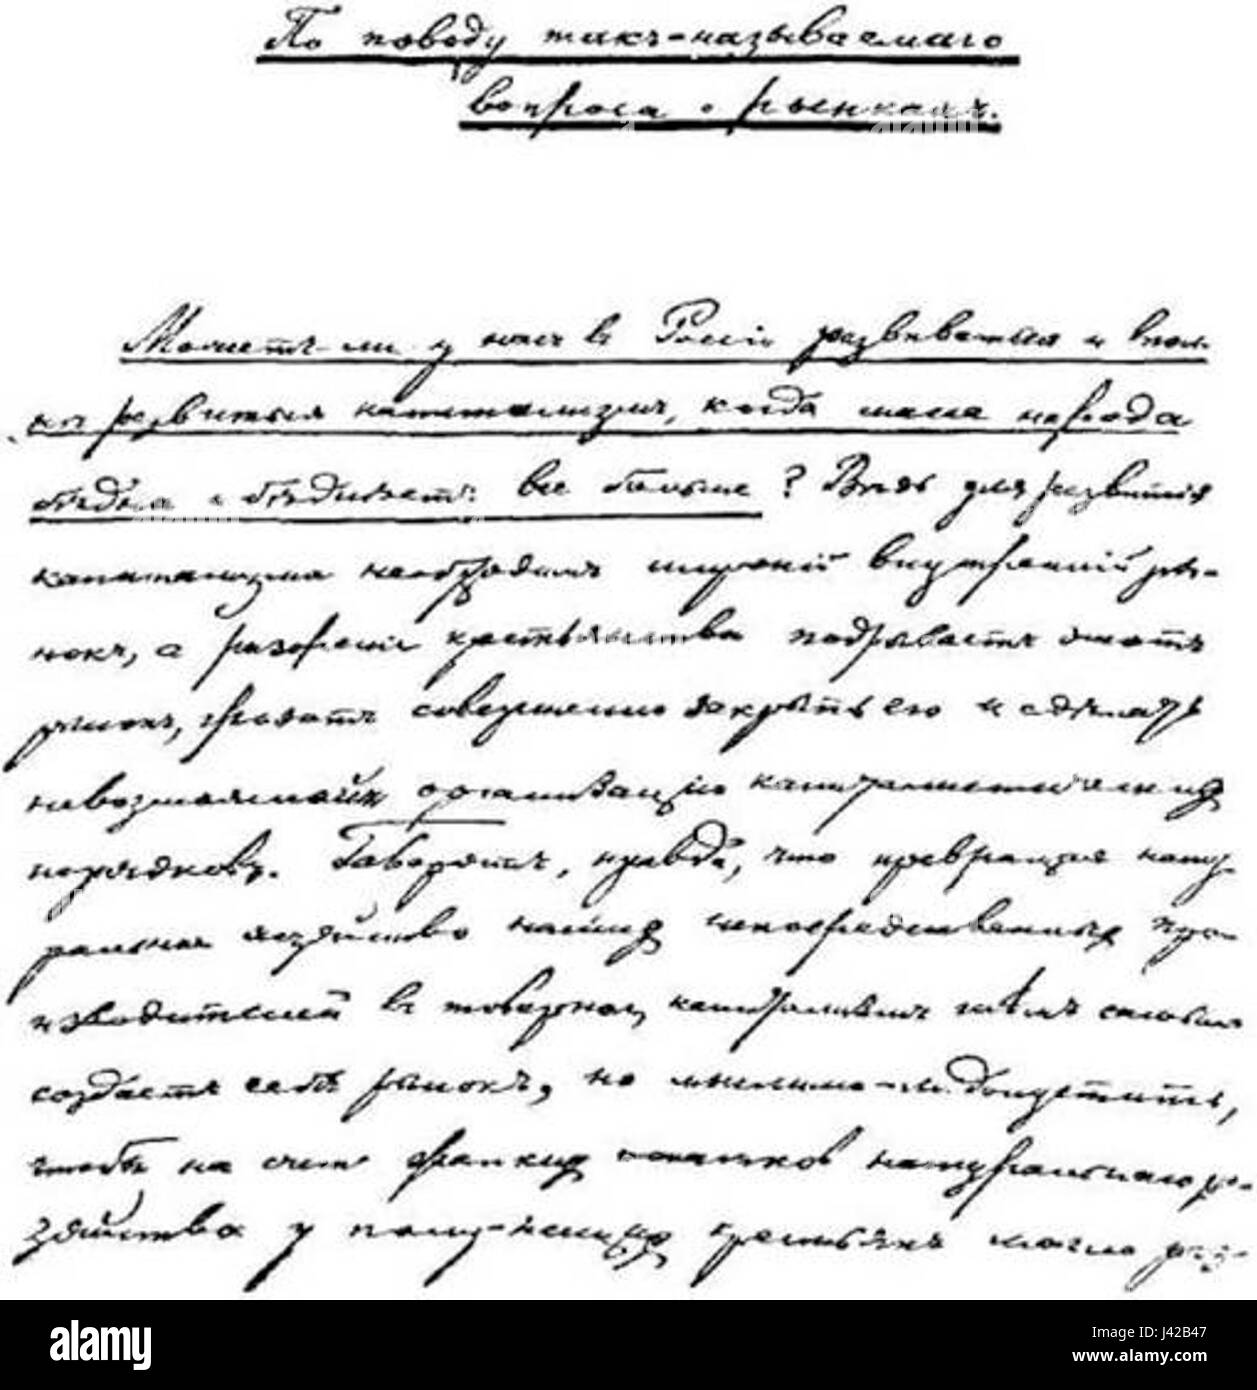 По поводу такъ-называемаго
вопроса о рынкахъ.
Можетъ-ли у насъ въ Россіи развиваться и впол-
нѣ развиться капитализмъ, когда масса народа
бѣдна и бѣднѣетъ все больше? Вѣдь для развитія
капитализма необходимъ широкій внутренній ры-
нокъ, а разореніе крестьянства подрываетъ этотъ
рынокъ, грозитъ совершенно закрыть его и сдѣлать
невозможной организацію капиталистическихъ
порядковъ. Говорятъ, правда, что превращая нату-
ральное хозяйство нашихъ непосредственныхъ про-
изводителей въ товарное, капитализмъ тѣмъ самымъ
создаетъ себѣ рынокъ, но мыслимо-ли допустить,
чтобы на счетъ жалкихъ остатковъ натуральнаго хо-
зяйства у полу-нищихъ крестьянъ могло раз-
alamy
alamy
Image ID: J42B47
www.alamy.com